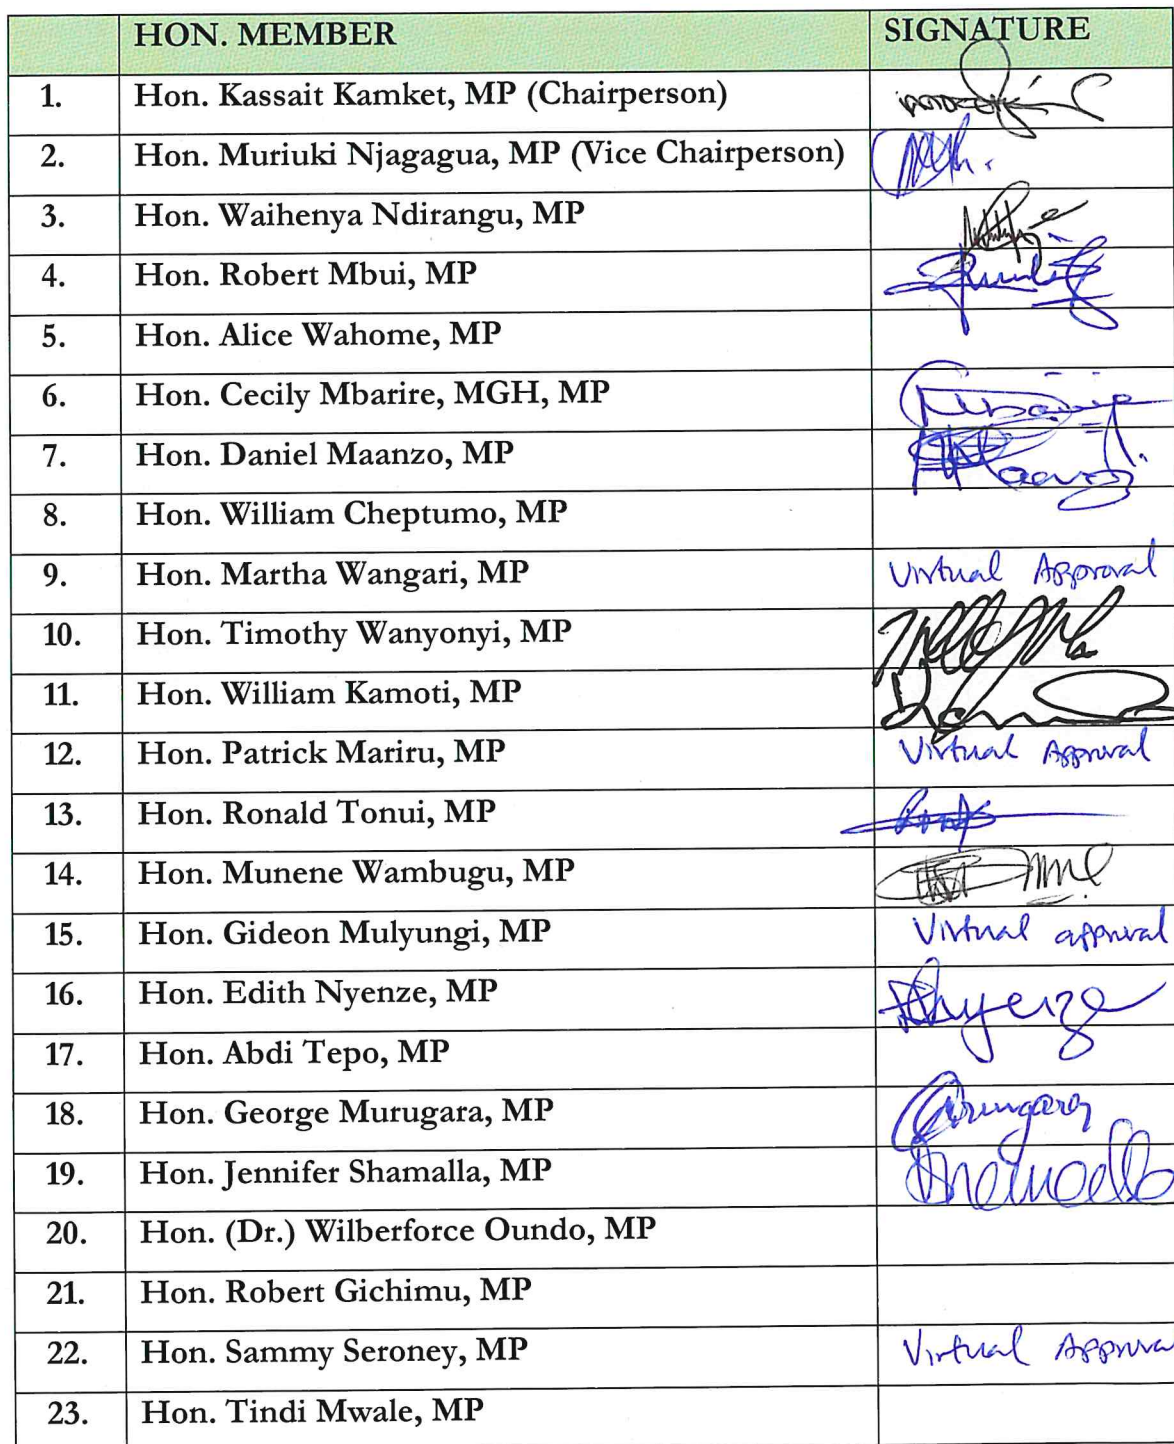 HON. MEMBER SIGNATURE
1. Hon. Kassait Kamket, MP (Chairperson)
2. Hon. Muriuki Njagagua, MP (Vice Chairperson)
3. Hon. Waihenya Ndirangu, MP
4. Hon. Robert Mbui, MP
5. Hon. Alice Wahome, MP
6. Hon. Cecily Mbarire, MGH, MP
7. Hon. Daniel Maanzo, MP
8. Hon. William Cheptumo, MP
9. Hon. Martha Wangari, MP Virtual Approval
10. Hon. Timothy Wanyonyi, MP
11. Hon. William Kamoti, MP
12. Hon. Patrick Mariru, MP Virtual Approval
13. Hon. Ronald Tonui, MP
14. Hon. Munene Wambugu, MP
15. Hon. Gideon Mulyungi, MP Virtual approval
16. Hon. Edith Nyenze, MP
17. Hon. Abdi Tepo, MP
18. Hon. George Murugara, MP
19. Hon. Jennifer Shamalla, MP
20. Hon. (Dr.) Wilberforce Oundo, MP
21. Hon. Robert Gichimu, MP
22. Hon. Sammy Seroney, MP Virtual Approval
23. Hon. Tindi Mwale, MP